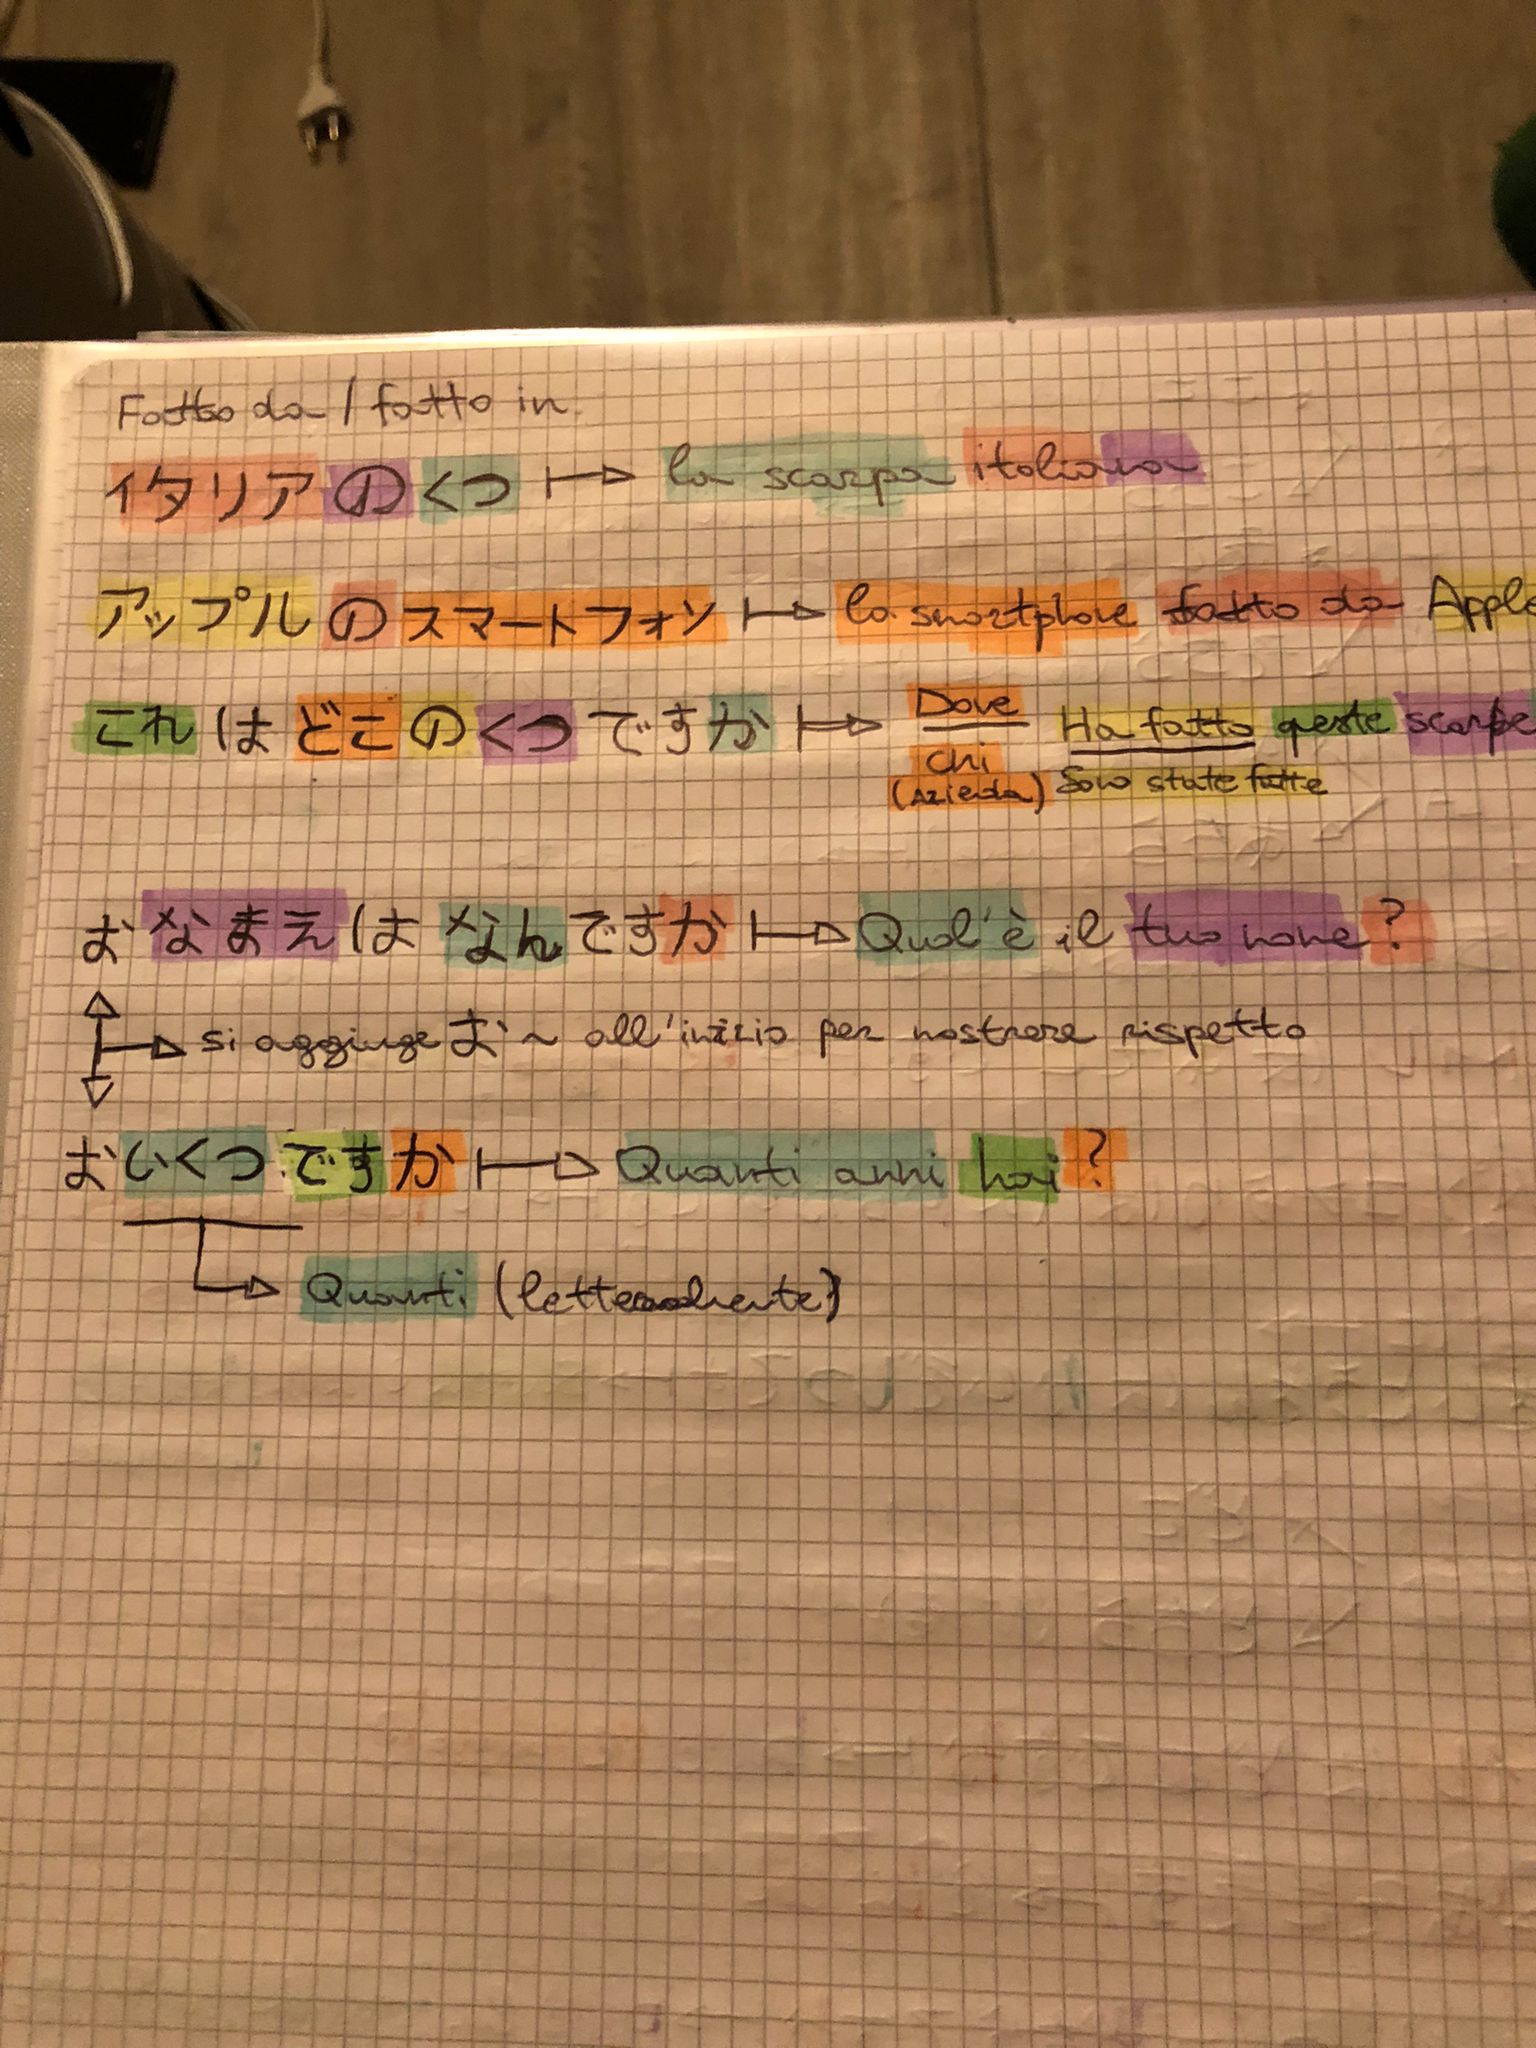 Fatto da / fatto in
イタリアのくつ ↦ la scarpa italiana
アップルのスマートフォン ↦ lo smartphone fatto da Apple
これはどこのくつですか ↦ Dove Ha fatto queste scarpe
chi
(Azienda) Sono state fatte
おなまえはなんですか ↦ Qual'è il tuo nome?
→ si aggiunge お~ all'inizio per mostrare rispetto
おいくつですか ↦ Quanti anni hai?
→ Quanti (letteralmente)